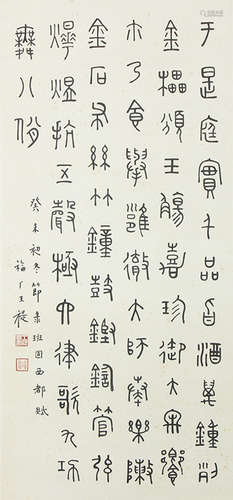 于是庭實千品旨酒萬鍾列
金櫑頒玉觴嘉珍御大牢饗
尒乃食舉雝徹大師奏樂敶
金石布絲竹鐘鼓鏗鍧管弦
燁煜抗五聲極六律歌九功
舞八佾
癸未初冬節录班固西都賦
福厂王禔